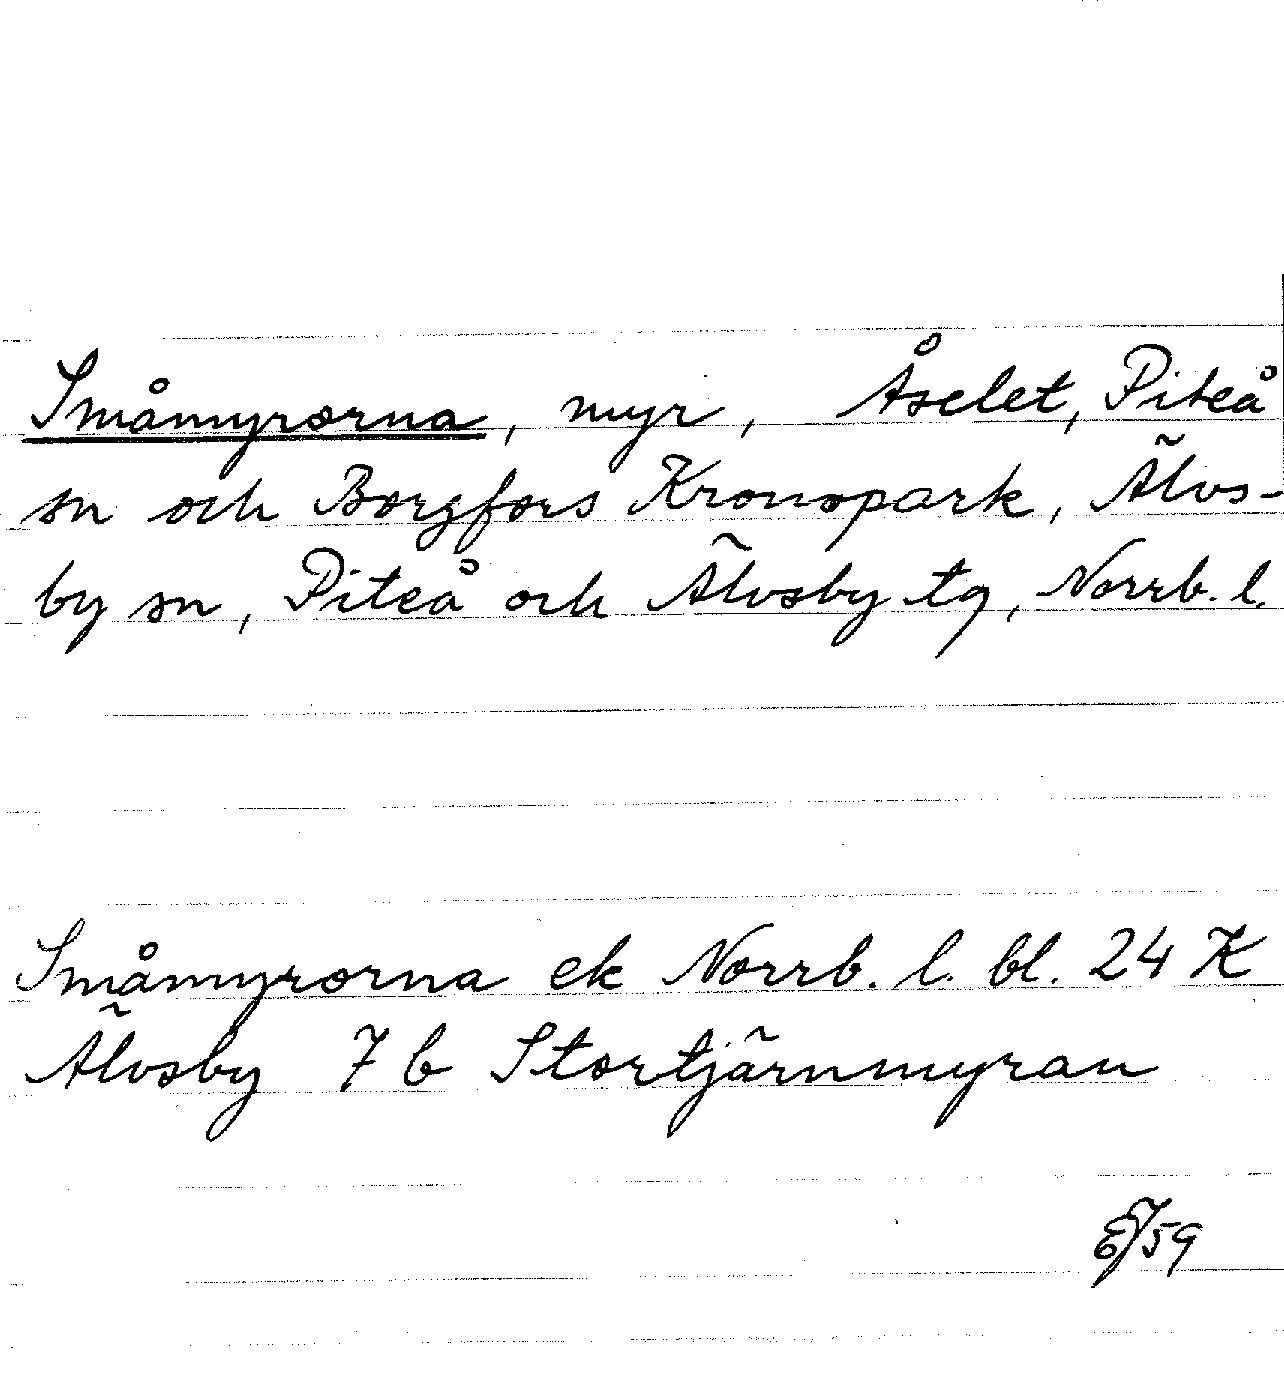 Småmyrorna, myr, Åselet, Piteå
sn och Borgfors Kronopark, Älvs-
by sn, Piteå och Älvsby tg, Norrb. l.
Småmyrorna ek Norrb. l. bl. 24 K
Älvsby 7 b Stortjärnmyran
/59